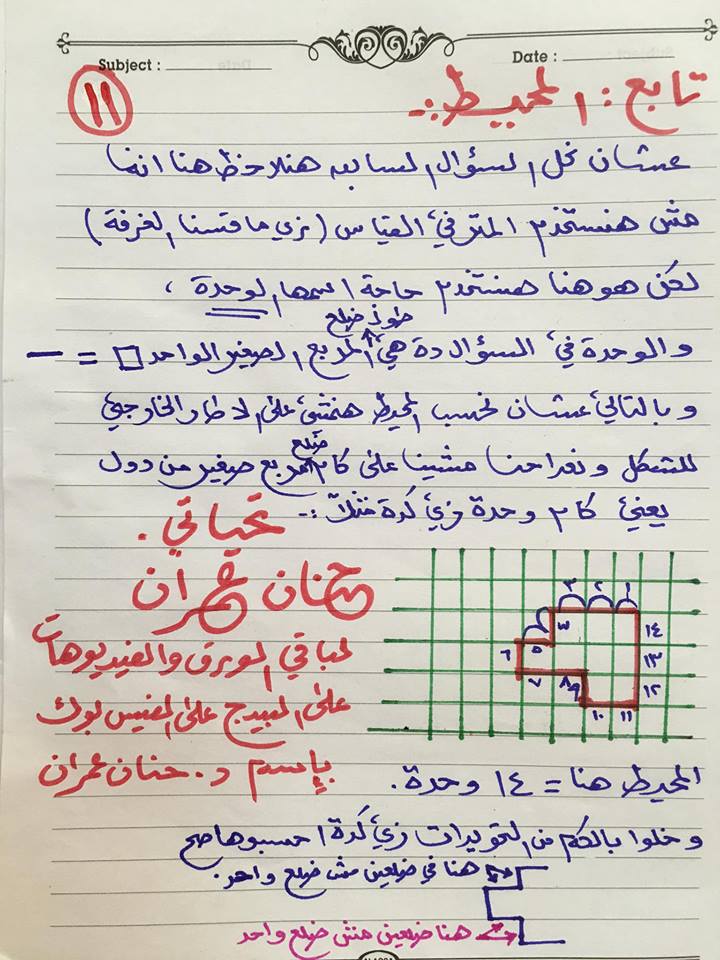 Subject :
Date :
١١
تابع : المحيط :-
عشان نحل السؤال السابق هنلاحظ هنا اننا
مش هنستخدم المتر في القياس (زي ما قسنا الغرفة)
لكن هو هنا هنستخدم حاجة اسمها الوحدة ،
طول ضلع
والوحدة في السؤال دة هي المربع الصغير الواحد □ = —
وبالتالي عشان نحسب المحيط هنمشي على الاطار الخارجي
ضلع
للشكل ونعد احنا مشينا على كام مربع صغير من دول
يعني كام وحدة زي كدة مثلاً :-
تحياتي .
حنان عمران
لباقي الورق والفيديوهات
على البيدج على الفيس بوك
بإسم د. حنان عمران
١ ٢ ٣
٣ ١٤
٦ ٥ ١٣
٧ ٨ ٩ ١٢
١٠ ١١
المحيط هنا = ١٤ وحدة .
وخلوا بالكم من التحويدات زي كدة احسبوها صح
هنا في ضلعين مش ضلع واحد .
هنا ضلعين مش ضلع واحد